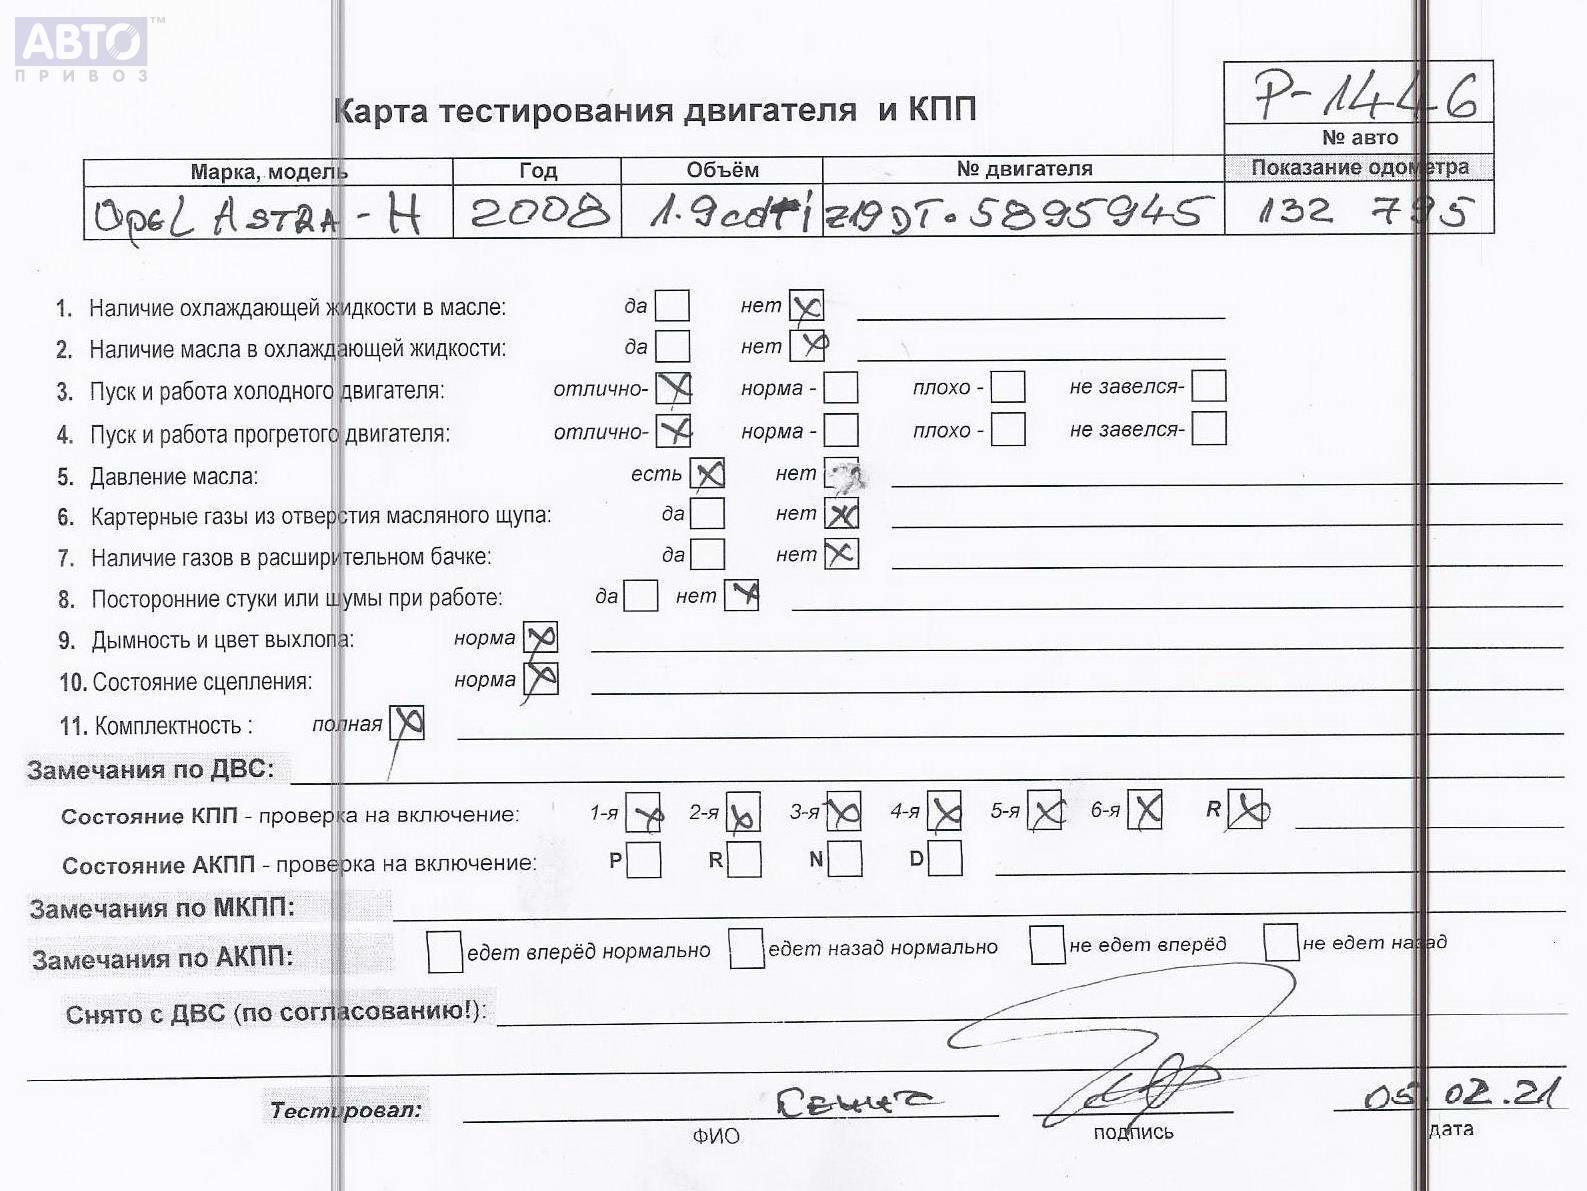 АВТО™
ПРИВОЗ
P-1446
Карта тестирования двигателя и КПП
№ авто
Марка, модель Год Объём № двигателя Показание одометра
Opel Astra-H 2008 1.9cdti Z19DT.5895945 132 795
1. Наличие охлаждающей жидкости в масле: да нет
2. Наличие масла в охлаждающей жидкости: да нет
3. Пуск и работа холодного двигателя: отлично- норма - плохо - не завелся-
4. Пуск и работа прогретого двигателя: отлично- норма - плохо - не завелся-
5. Давление масла: есть нет
6. Картерные газы из отверстия масляного щупа: да нет
7. Наличие газов в расширительном бачке: да нет
8. Посторонние стуки или шумы при работе: да нет
9. Дымность и цвет выхлопа: норма
10. Состояние сцепления: норма
11. Комплектность : полная
Замечания по ДВС:
Состояние КПП - проверка на включение: 1-я 2-я 3-я 4-я 5-я 6-я R
Состояние АКПП - проверка на включение: P R N D
Замечания по МКПП:
Замечания по АКПП: едет вперёд нормально едет назад нормально не едет вперёд не едет назад
Снято с ДВС (по согласованию!):
Тестировал: 05.02.21
ФИО подпись дата